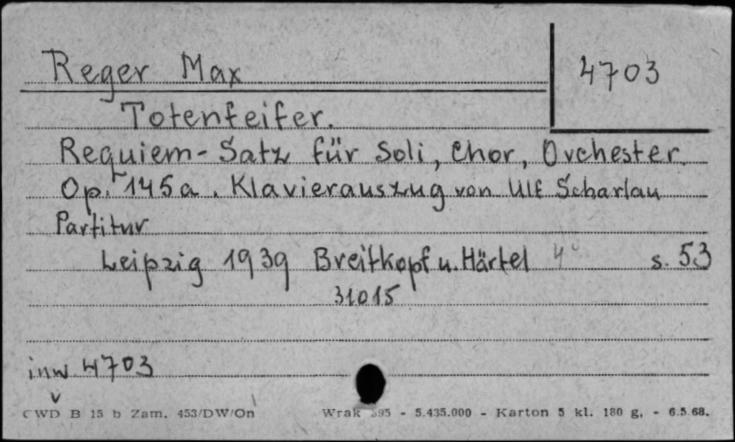 Reger Max
4703
Totenfeifer.
Requiem-Satz für Soli, Chor, Orchester.
Op. 145a. Klavierauszug von Ulf Scharlau
Partitur
Leipzig 1939 Breitkopf u. Härtel 4° s. 53
31015
inw 4703
CWD B 15 b Zam. 453/DW/On Wrak 595 - 5.435.000 - Karton 5 kl. 180 g. - 6.5.68.